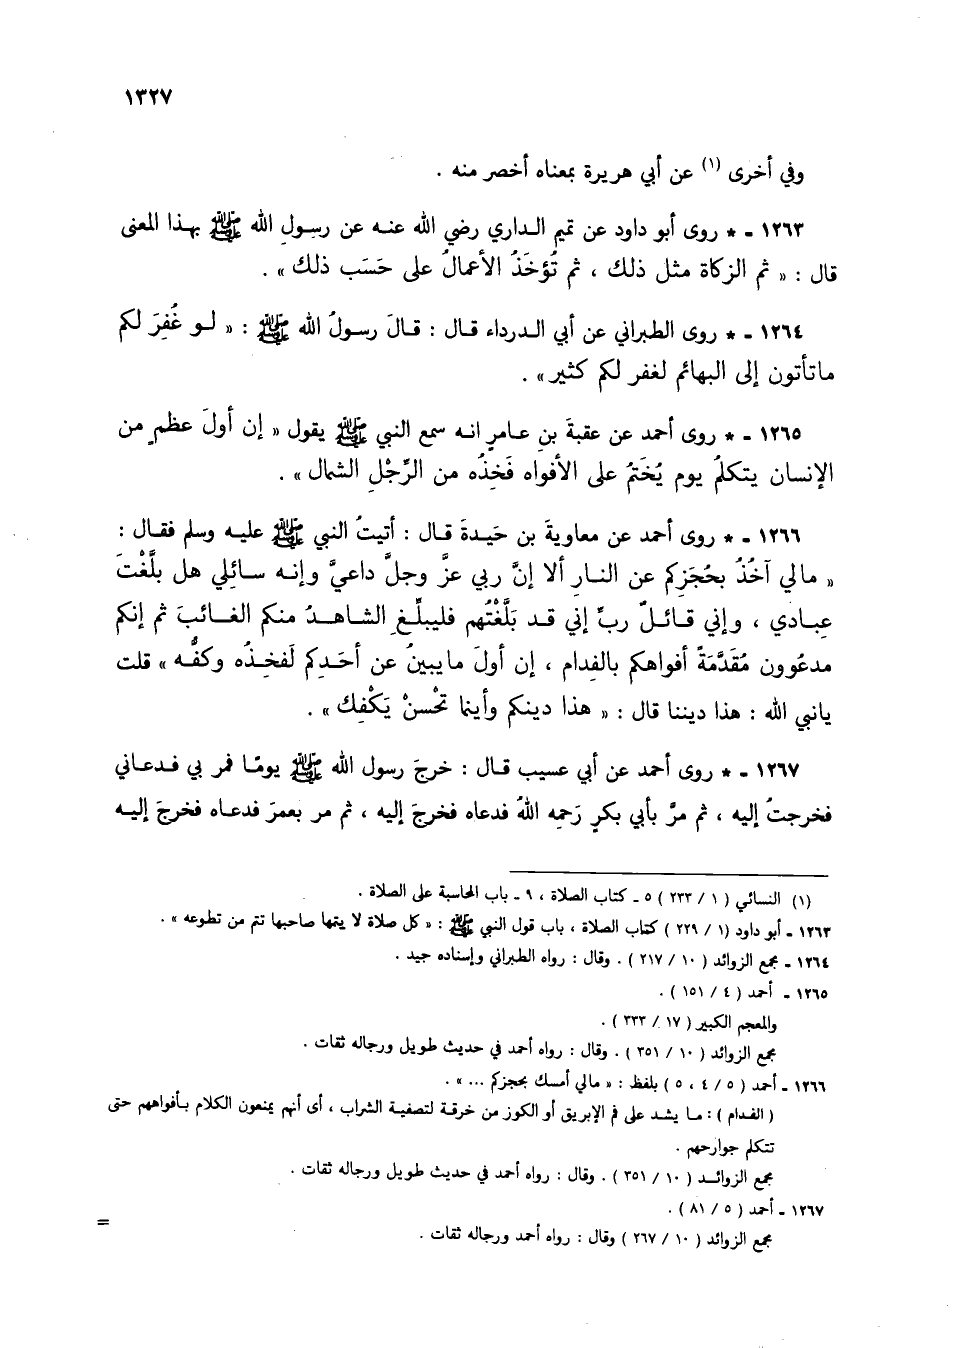 ١٣٢٧
وفي أخرى (١) عن أبي هريرة بمعناه أخصر منه .
١٢٦٣ ـ * روى أبو داود عن تميم الداري رضي الله عنه عن رسولِ الله ﷺ بهذا المعنى
قال : « ثم الزكاة مثل ذلك ، ثم تُؤخَذُ الأعمالُ على حَسَب ذلك » .
١٢٦٤ ـ * روى الطبراني عن أبي الدرداء قال : قالَ رسولُ الله ﷺ : « لو غُفِرَ لكم
ماتأتون إلى البهائم لغفر لكم كثير» .
١٢٦٥ ـ * روى أحمد عن عقبةَ بنِ عامرٍ انه سمع النبي ﷺ يقول « إن أولَ عظمٍ من
الإنسان يتكلمُ يوم يُختَمُ على الأفواه فَخِذُه من الرِّجْلِ الشمال » .
١٢٦٦ ـ * روى أحمد عن معاويةَ بن حَيدةَ قال : أتيتُ النبي ﷺ عليه وسلم فقال :
« مالي آخُذُ بحُجَزِكم عن النارِ ألا إنَّ ربي عزَّ وجلَّ داعيَّ وإنه سائلي هل بلَّغْتَ
عبادي ، وإني قائلٌ ربِّ إني قد بَلَّغْتُهم فليبلِّغِ الشاهدُ منكم الغائبَ ثم إنكم
مدعُوون مُقَدَّمَةً أفواهكم بالفِدام ، إن أولَ مايبينُ عن أحَدِكم لَفخِذُه وكفُّه » قلت
يانبي الله : هذا ديننا قال : « هذا دينكم وأينما تحْسنْ يَكْفِك » .
١٢٦٧ ـ * روى أحمد عن أبي عسيب قال : خرجَ رسول الله ﷺ يومًا فمر بي فدعاني
فخرجتُ إليه ، ثم مرَّ بأبي بكرٍ رَحمِه اللهُ فدعاه فخرجَ إليه ، ثم مر بعمرَ فدعاه فخرجَ إليه
(١) النسائي ( ١ / ٢٣٣ ) ٥ ـ كتاب الصلاة ، ٩ ـ باب المحاسبة على الصلاة .
١٢٦٣ ـ أبو داود (١ / ٢٢٩ ) كتاب الصلاة ، باب قول النبي ﷺ : « كل صلاة لا يتمها صاحبها تتم من تطوعه » .
١٢٦٤ ـ مجمع الزوائد ( ١٠ / ٢١٧ ) . وقال : رواه الطبراني وإسناده جيد .
١٢٦٥ ـ أحمد ( ٤ / ١٥١ ) .
والمعجم الكبير ( ١٧ / ٣٣٣ ) .
مجمع الزوائد ( ١٠ / ٣٥١ ) . وقال : رواه أحمد في حديث طويل ورجاله ثقات .
١٢٦٦ ـ أحمد ( ٥ / ٤ ، ٥ ) بلفظ : « مالي أمسك بحجزكم ... » .
( الفدام ) : ما يشد على فم الإبريق أو الكوز من خرقة لتصفية الشراب ، أى أنهم يمنعون الكلام بأفواههم حتى
تتكلم جوارحهم .
مجمع الزوائد ( ١٠ / ٣٥١ ) . وقال : رواه أحمد في حديث طويل ورجاله ثقات .
١٢٦٧ ـ أحمد ( ٥ / ٨١ ) .
مجمع الزوائد ( ١٠ / ٢٦٧ ) وقال : رواه أحمد ورجاله ثقات .
=